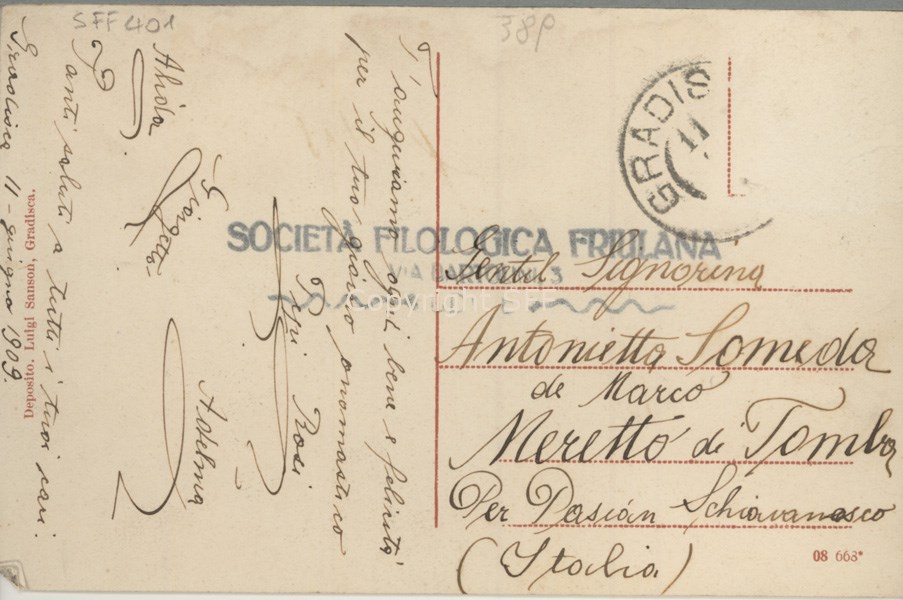 SFF 401
38P
T'auguriamo ogni bene e felicità
per il tuo giorno onomastico
Pepi Rosi
Giorgetta
Adelma
Alida
Tanti saluti a tutti i tuoi cari:
Gradisca 11 - giugno 1909.
Deposito. Luigi Sanson, Gradisca.
GRADIS
11
SOCIETÀ FILOLOGICA FRIULANA
VIA 3
Copyright SFF
Gentil Signorina
Antonietta Someda
de Marco
Meretto di Tomba
Per Pasian Schiavonesco
(Italia)
08 668*